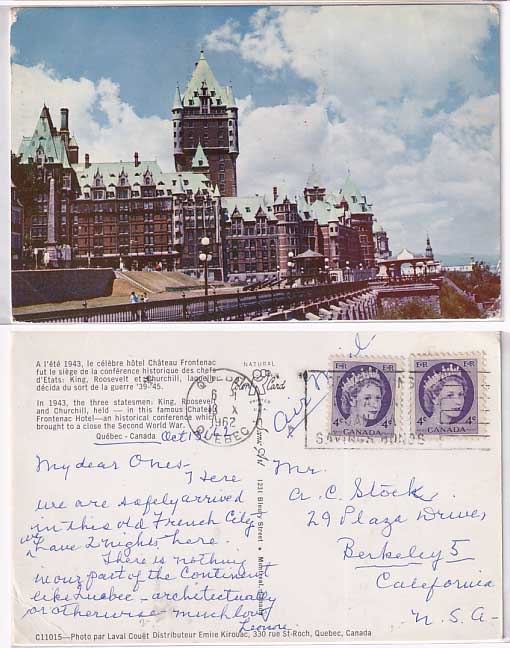 A l'été 1943, le célèbre hôtel Château Frontenac
fut le siège de la conférence historique des chefs
d'Etats: King, Roosevelt et Churchill, laquelle
décida du sort de la guerre '39-'45.
In 1943, the three statesmen: King, Roosevelt
and Churchill, held — in this famous Chateau
Frontenac Hotel — an historical conference which
brought to a close the Second World War.
Québec - Canada
Oct 13/62
My dear Ones -
There
we are safely arrived
in this old French City
we have 2 nights here.
There is nothing
in our part of the Continent
like Quebec - architecturally
or otherwise - much love
Leonore.
C11015—Photo par Laval Couët Distributeur Emile Kirouac, 330 rue St-Roch, Quebec, Canada
NATURAL
1231 Bleury Street • Montreal, Canada
QUEBEC
X
1962
SAVINGS BONDS
air mail
E R
4¢ CANADA 4¢
E R
4¢ CANADA 4¢
Mr.
A. C. Stock
29 Plaza Drive,
Berkeley 5
California
U.S.A-